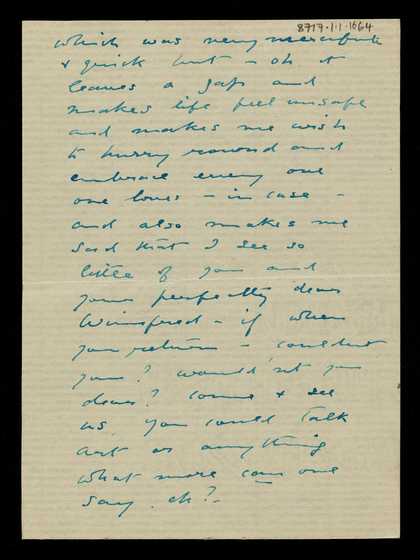 8717.1.1.1664
which was very merciful
& quick but – oh it
leaves a gap and
makes life feel unsafe
and makes me wish
to hurry round and
embrace every one
one loves – in case –
and also makes me
sad that I see so
little of you and
your perfectly dear
Winifred – if when
you return – couldnt
you? would'nt you
dears? come & see
us you could talk
art or anything
what more can one
say. eh?–